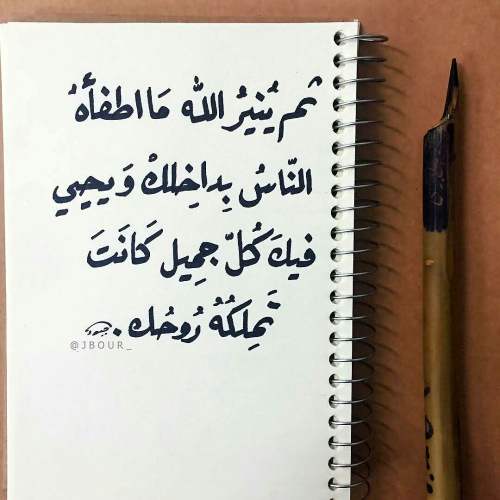 ثم يُنيرُ الله مَا اطفأهُ
النّاسُ بِداخِلكْ وَيحيِي
فيكَ كُلّ جمِيل كَانَتَ
تَملِكُهُ رُوحُك .
@JBOUR_